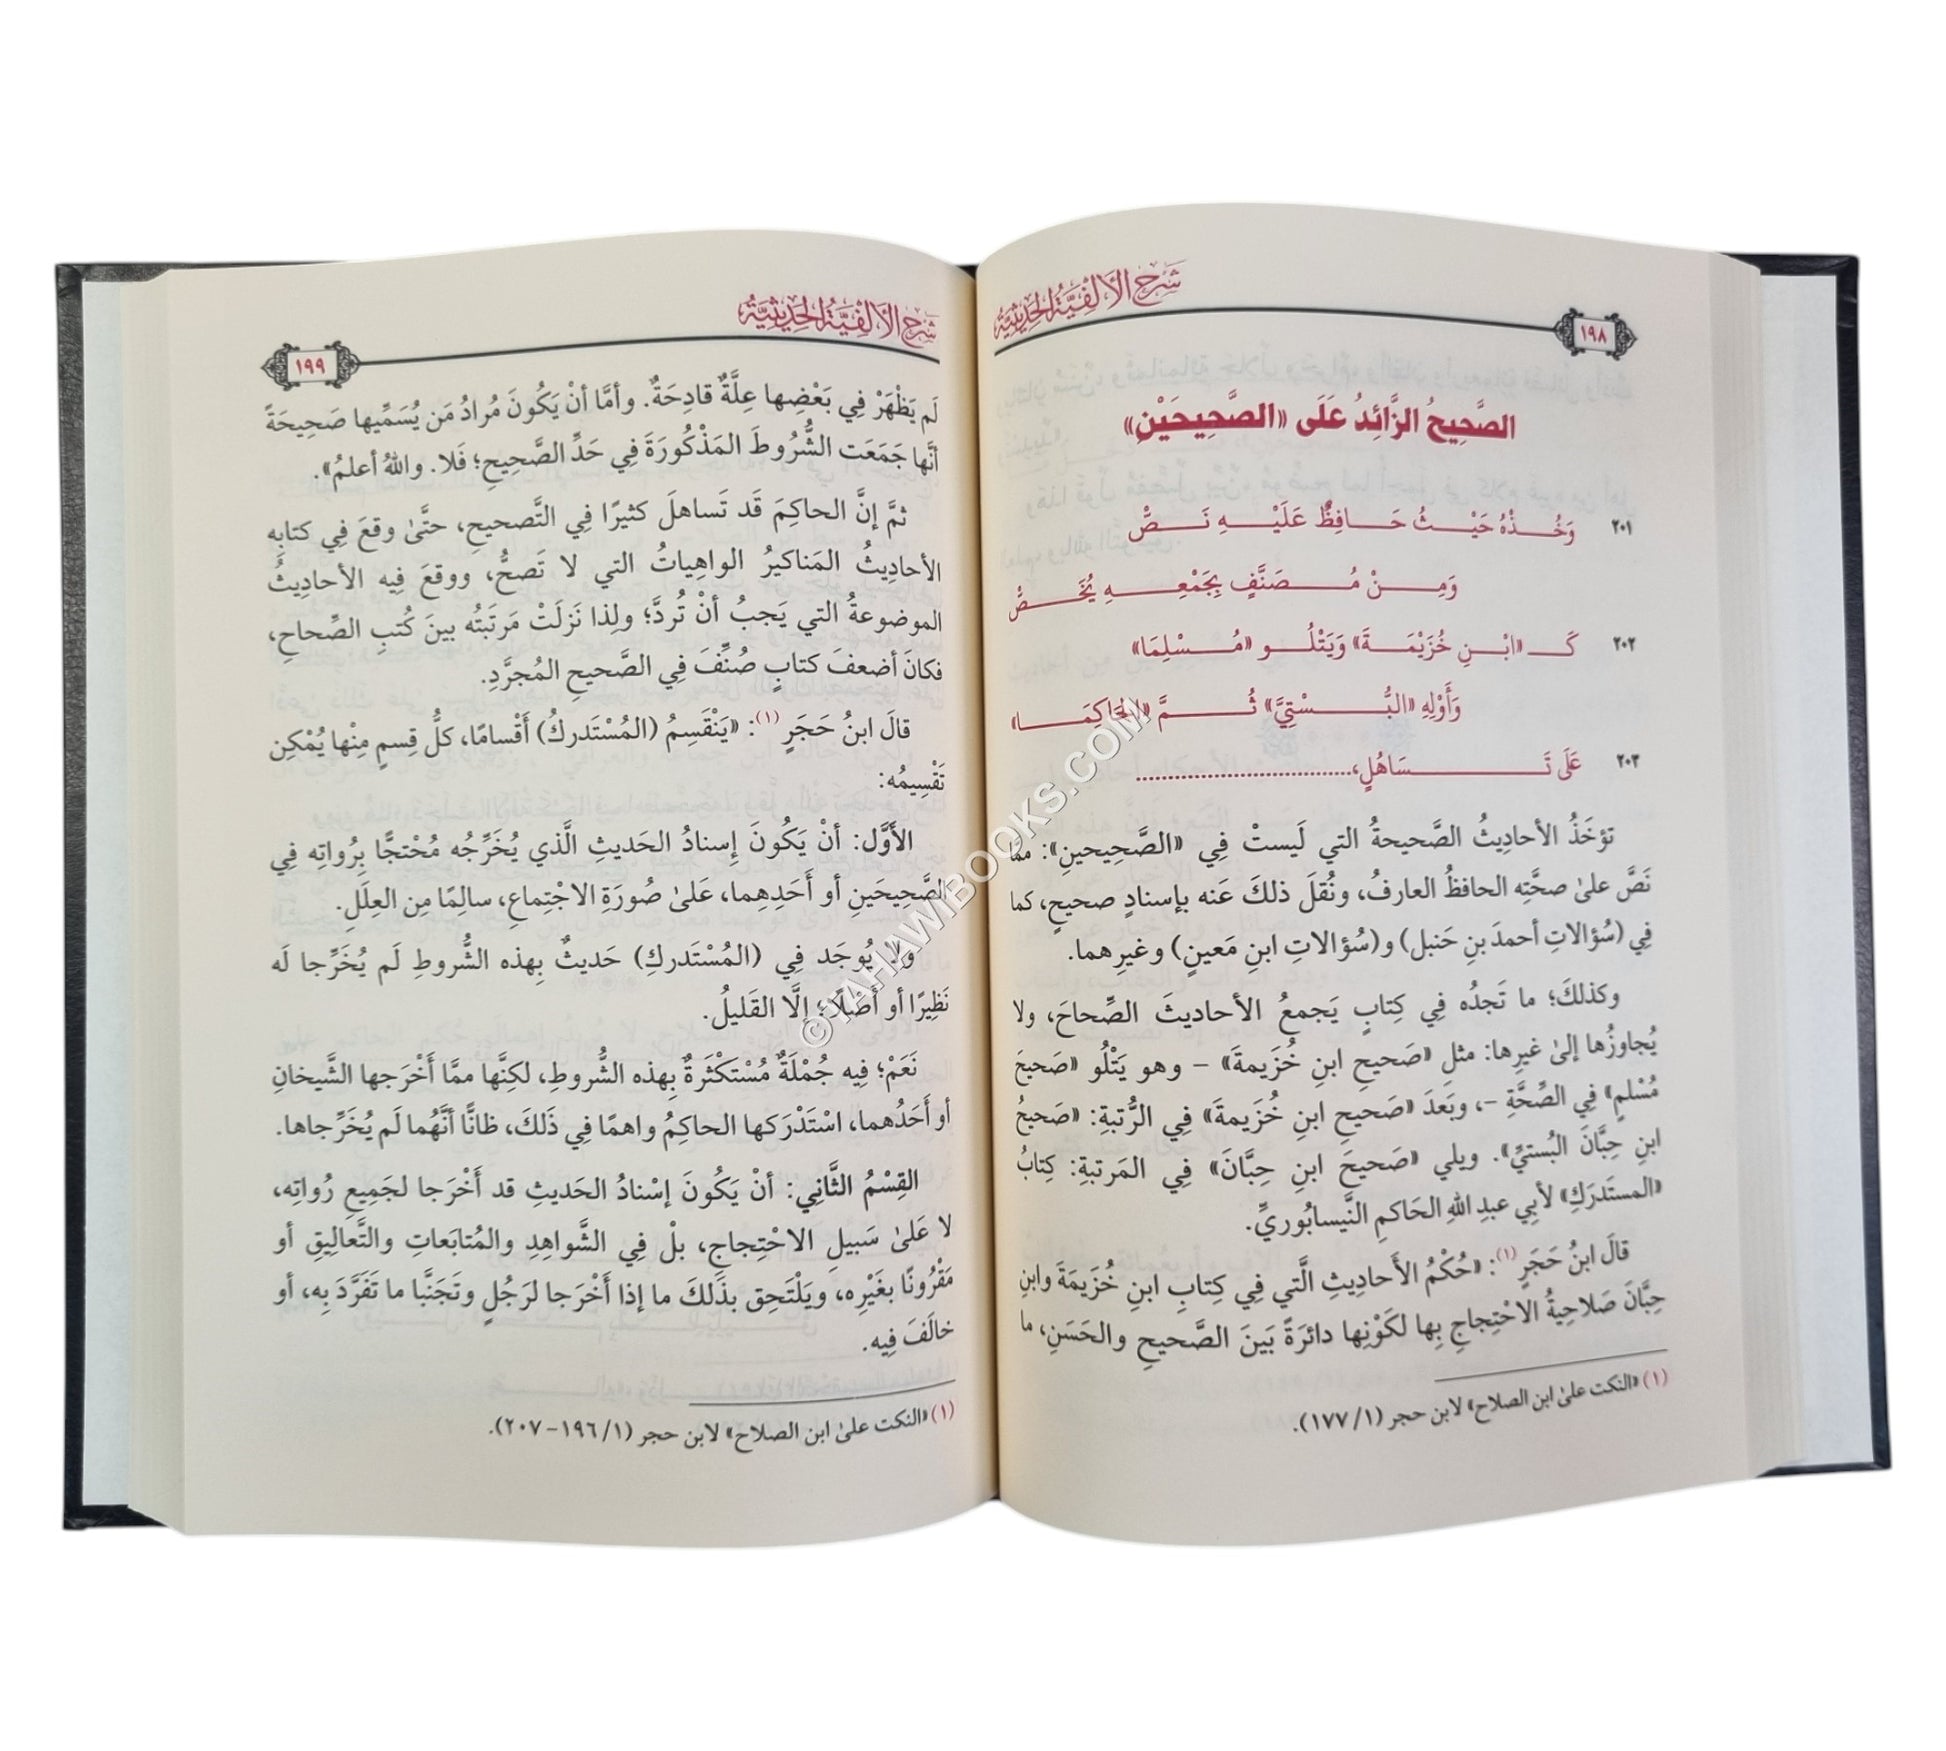 شرح الألفية الحديثية
١٩٨
الصَّحِيحُ الزَّائِدُ عَلَى «الصَّحِيحَيْنِ»
٢٠١ وَخُذْهُ حَيْثُ حَافِظٌ عَلَيْهِ نَصّْ
وَمِنْ مُصَنَّفٍ بِجَمْعِهِ يُخَصّْ
٢٠٢ كَـ «ابْنِ خُزَيْمَةَ» وَيَتْلُو «مُسْلِمَا»
وَأَوْلِهِ «البُسْتِيَّ» ثُمَّ «الحَاكِمَا»
٢٠٣ عَلَى تَسَاهُلٍ،................................
تؤخَذُ الأحاديثُ الصَّحيحةُ التي لَيستْ فِي «الصَّحِيحينِ»: ممَّا
نَصَّ علىٰ صحَّتِه الحافظُ العارفُ، ونُقلَ ذلكَ عَنه بإسنادٍ صحيحٍ، كما
فِي (سُؤالاتِ أحمدَ بنِ حَنبل) و(سُؤالاتِ ابنِ مَعينٍ) وغيرِهما.
وكذلكَ؛ ما تَجدُه فِي كِتابٍ يَجمعُ الأحاديثَ الصِّحاحَ، ولا
يُجاوزُها إلىٰ غيرِها: مثلِ «صَحيحِ ابنِ خُزَيمةَ» – وهو يَتْلُو «صَحيحَ
مُسْلمٍ» فِي الصِّحَّةِ –، وبَعدَ «صَحيحِ ابنِ خُزَيمةَ» فِي الرُّتبةِ: «صَحيحُ
ابنِ حِبَّانَ البُستيِّ». ويلي «صَحيحَ ابنِ حِبَّانَ» فِي المَرتبةِ: كِتابُ
«المستَدرَكِ» لأبِي عبدِ اللهِ الحَاكمِ النَّيسابُوريِّ.
قالَ ابنُ حَجَرٍ (١): «حُكْمُ الأَحاديثِ الَّتي فِي كِتابِ ابنِ خُزَيمَةَ وابنِ
حِبَّانَ صَلاحِيةُ الاحْتِجاجِ بِها لكَوْنِها دائرَةً بَينَ الصَّحيحِ والحَسَنِ، ما
(١) «النكت علىٰ ابن الصلاح» لابن حجر (١/ ١٧٧).
شرح الألفية الحديثية
١٩٩
لَم يَظْهَرْ فِي بَعْضِها عِلَّةٌ قادِحَةٌ. وأمَّا أنْ يَكُونَ مُرادُ مَن يُسَمِّيها صَحِيحَةً
أنَّها جَمَعَت الشُّرُوطَ المَذْكُورَةَ فِي حَدِّ الصَّحِيحِ؛ فَلا. واللهُ أعلمُ».
ثمَّ إنَّ الحاكِمَ قَد تَساهلَ كثيرًا فِي التَّصحيحِ، حتَّىٰ وقعَ فِي كتابِه
الأحاديثُ المَناكيرُ الواهِياتُ التي لا تَصحُّ، ووقعَ فِيه الأحاديثُ
الموضوعةُ التي يَجبُ أنْ تُردَّ؛ ولِذا نَزلَتْ مَرتَبتُه بينَ كُتبِ الصِّحاحِ،
فكانَ أضعفَ كتابٍ صُنِّفَ فِي الصَّحيحِ المُجرَّدِ.
قالَ ابنُ حَجَرٍ (١): «يَنْقَسِمُ (المُسْتَدركُ) أَقْسامًا، كلُّ قِسمٍ مِنْها يُمْكِن
تَقْسِيمُه:
الأَوَّل: أنْ يَكُونَ إِسنادُ الحَديثِ الَّذي يُخَرِّجُه مُحْتجًّا بِرُواتِه فِي
الصَّحِيحَينِ أو أَحَدِهِما، عَلىٰ صُورَةِ الاجْتِماعِ، سالِمًا مِن العِلَلِ.
ولا يُوجَد فِي (المُسْتَدركِ) حَديثٌ بِهذه الشُّروطِ لَم يُخَرِّجا لَه
نَظِيرًا أو أَصْلًا؛ إلَّا القَليلُ.
نَعَمْ؛ فِيه جُمْلَةٌ مُسْتَكْثَرَةٌ بِهذه الشُّروطِ، لكِنَّها ممَّا أَخْرَجها الشَّيخانِ
أو أَحَدُهما، اسْتَدْرَكها الحاكِمُ واهمًا فِي ذَلكَ، ظانًّا أنَّهُما لَم يُخَرِّجاها.
القِسْمُ الثَّانِي: أنْ يَكُونَ إسْنادُ الحَديثِ قد أَخْرَجا لجَمِيعِ رُواتِه،
لا عَلىٰ سَبيلِ الاحْتِجاجِ، بلْ فِي الشَّواهِدِ والمُتابَعاتِ والتَّعالِيقِ أو
مَقْرُونًا بغَيْرِه، ويَلْتَحِق بذَلكَ ما إذا أَخْرَجا لرَجُلٍ وتَجَنَّبا ما تَفَرَّدَ بِه، أو
خالَفَ فِيه.
(١) «النكت علىٰ ابن الصلاح» لابن حجر (١/ ١٩٦ – ٢٠٧).
© TAHAWIBOOKS.COM